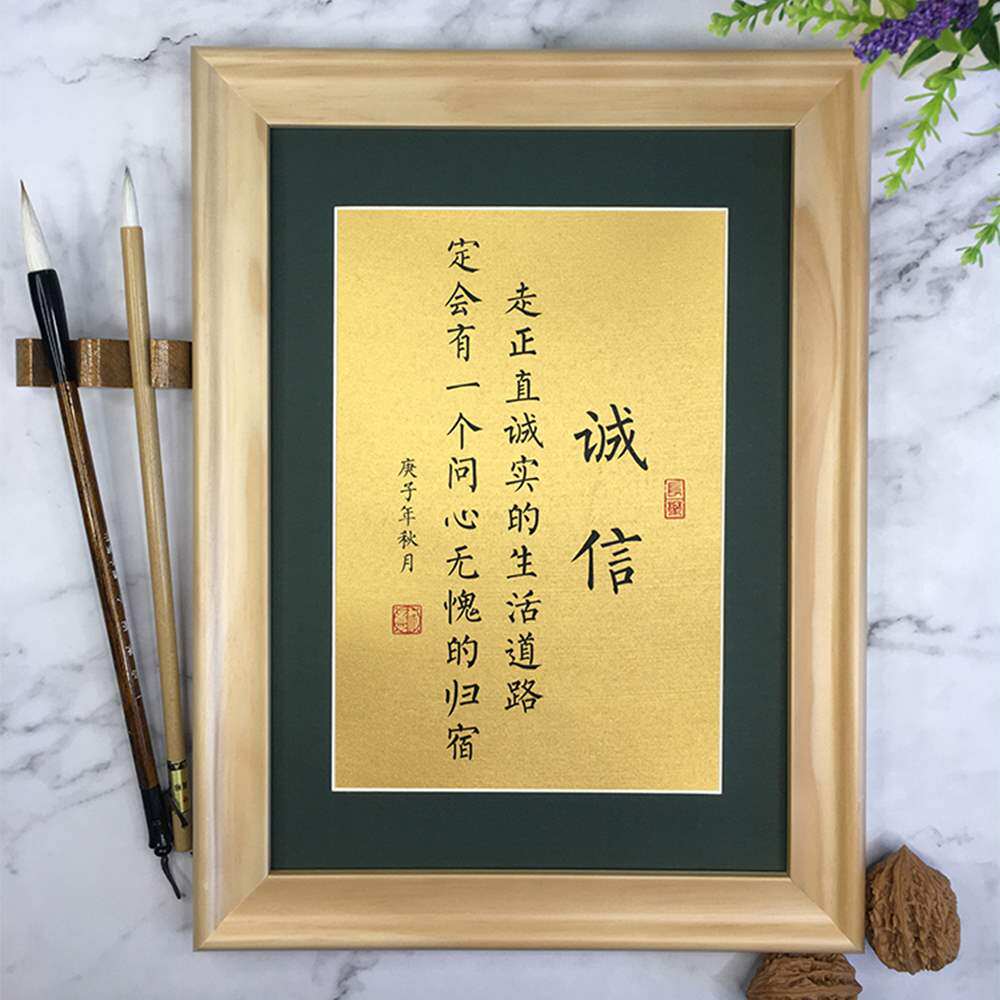 诚信
走正直诚实的生活道路
定会有一个问心无愧的归宿
庚子年秋月